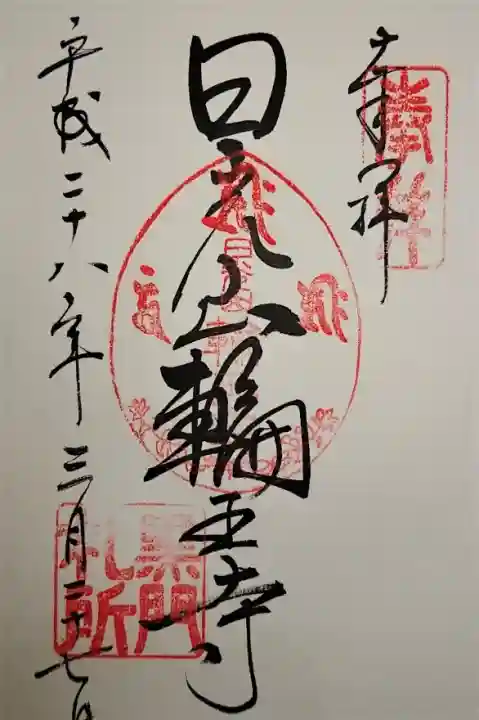 奉拝
奉拝
日光山輪王寺
黒門
札所
平成二十八年三月二十七日